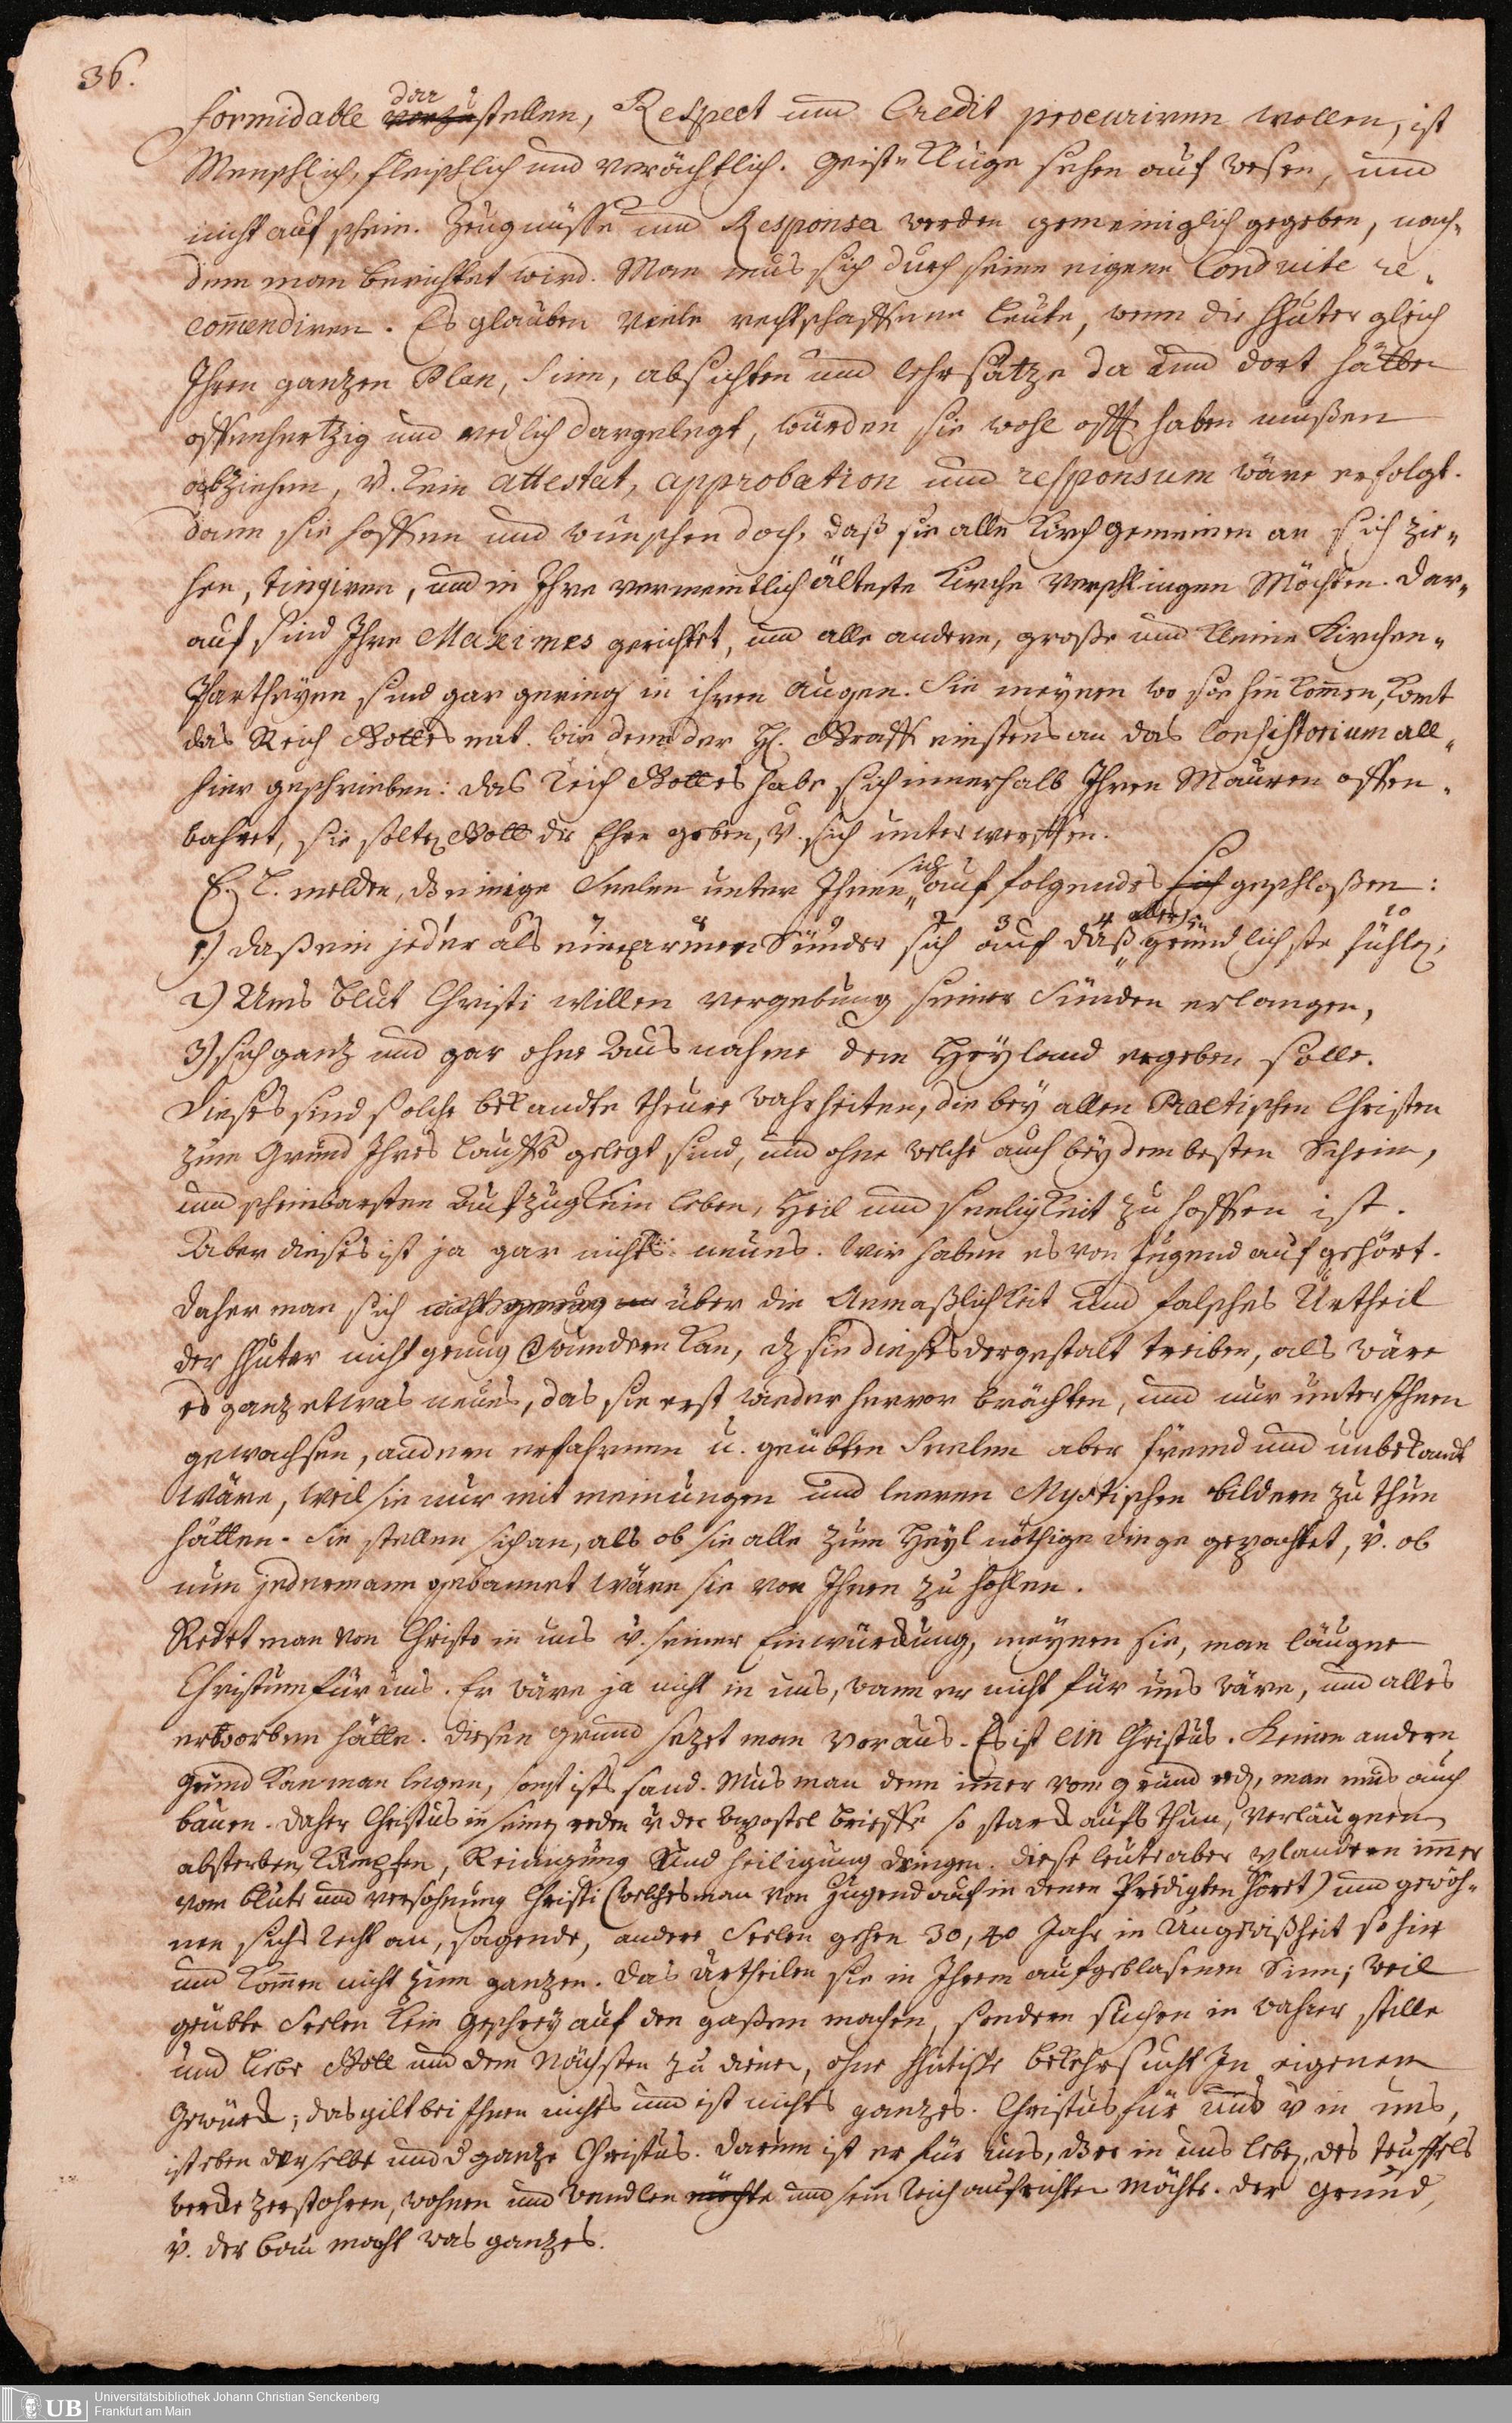 36.
formidable dar
vorzustellen, Respect und Credit procuriren wollen, ist
Menschlich, fleischlich und verächtlich. Geistkluge sehen auf wesen, und
nicht auf schein. Zeugnüsse und Responsa werden gemeiniglich gegeben, nach-
dem man berichtet wird. Man mus sich durch seine eigene Conduite re-
com̄endiren. Es glauben viele rechtschaffene Leute, wenn die Hhuter gleich
Ihren ganzen Plan, Sinn, absichten und lehrsätze da und dort hätten
offenhertzig und redlich dargelegt, würden sie wohl offt haben müßen
abziehen, u. kein attestat, approbation und responsum wäre erfolgt.
dann sie hoffen und wünschen doch, daß sie alle Kirchgemeinen an sich zie-
hen, tingiren, und in Ihre vermeintlich älteste Kirche verschlingen Möchten. Dar-
auf sind Ihre Maximes gerichtet, und alle andere, große und kleine Kirchen-
Partheyen sind gar gering in ihren Augen. Sie meynen wo sie hin kom̄en, komt
das Reich Gottes mit. Wie denn der H. Graff einstens an das Consistorium all-
hier geschrieben: das Reich Gottes habe sich innerhalb Ihren Mauren offen-
bahret, sie solten Gott die Ehre geben, u. sich unterwerffen.
E. L. melden, daß einige Seelen unter Ihnen sich auf folgendes sich geschloßen:
1.) daß ein jeder als ein armer Sünder sich auf daß allergründlichste fühlen,
2) Ums Blut Christi willen vergebung seiner Sünden erlangen,
3) sich ganz und gar ohne Ausnahme dem Heyland ergeben solle.
Dieses sind solche bekandte theure wahrheiten, die bey allen Practischen Christen
zum Grund Ihres lauffs gelegt sind, und ohne welche auch bey dem besten Schein,
und scheinbarsten Aufzug kein leben, Heil und seeligkeit zu hoffen ist.
Aber dieses ist ja gar nichts neues. Wir haben es von Jugend auf gehört.
Daher man sich nicht genug über die Anmaßlichkeit und falsches Urtheil
der Hhuter nicht genug wundern kan, daß sie dieses dergestalt treiben, als wäre
es ganz etwas neues, das sie erst wieder hervor brächten, und nur unter Ihnen
gewachsen, andern erfahrnen u. geübten Seelen aber fremd und unbekandt
wäre, weil sie nur mit meinungen und leeren Mystischen bildern zu thun
hätten. Sie stellen sich an, als ob sie alle zum Heyl nöthige dinge gepachtet, u. ob
nun jedermann gebannet wäre sie von Ihnen zu hohlen.
Redet man von Christo in uns u. seiner Einwürckung, meynen sie, man läugne
Christum für uns. Er wäre ja nicht in uns, wann er nicht für uns wäre, und alles
erworben hätte. Diesen grund sezet man voraus. Es ist ein Christus. Keinen andern
Grund kan man legen, sonst ists sand. Mus man denn im̄er vom grund reden, man mus auch
bauen. Daher Christus in seinen reden u der Apostel brieffe so starck aufs thun, verläugnen,
absterben, kämpfen, Reinigung und heiligung dringen. Diese leute aber plaudern im̄er
vom blute und versöhnung Christi (welches man von Jugend auf in denen Predigten höret) und gewöh-
nen sichs recht an, sagende, andere Seelen gehen 30, 40 Jahr in Ungewißheit so hin
und kom̄en nicht zum ganzen. Das Urtheilen sie in Ihrem aufgeblasenen Sinn; weil
geübte Seelen kein Geschrey auf den gaßen machen, sondern suchen in wahrer stille
und liebe Gott und dem Nächsten zu dienen, ohne Hhutische bekehrsucht In eigenem
Gewürck; das gilt bei Ihnen nichts und ist nichts ganzes. Christus für uns u in uns,
ist eben derselbe und d ganze Christus. Darum ist er für uns, daß er in uns leben, des teuffels
wercke zerstohren, wohnen und wandlen möchte und sein Reich aufrichten Möchte. Der grund,
u. der bau macht was ganzes.
UB Universitätsbibliothek Johann Christian Senckenberg
Frankfurt am Main